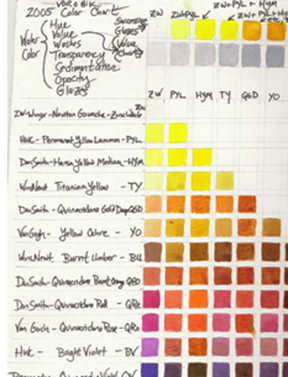 2005 Color Chart
Hue
Water Color
Washes
Transparency
Sedimentation
Opacity
Glazes
Successive Glazes
Value Charts
ZW ZW+PYL ZW+PYL+HYM
ZW PYL HYM TY QGD YO
ZW-Winsor-Newton Gouache-Zinc White ZW
HWC - Permanent Yellow Lemon - PYL
DanSmith - Hansa Yellow Medium - HYM
WinsNewt Titanium Yellow - TY
DanSmith - Quinacridone Gold Deep QGD
VanGogh - Yellow Ochre - YO
WinsNewt Burnt Umber - BU
DanSmith - Quinacridone Burnt Orange QBO
DanSmith - Quinacridone Red - QRe
Van Gogh - Quinacridone Rose - QRo
HWC - Bright Violet - BV